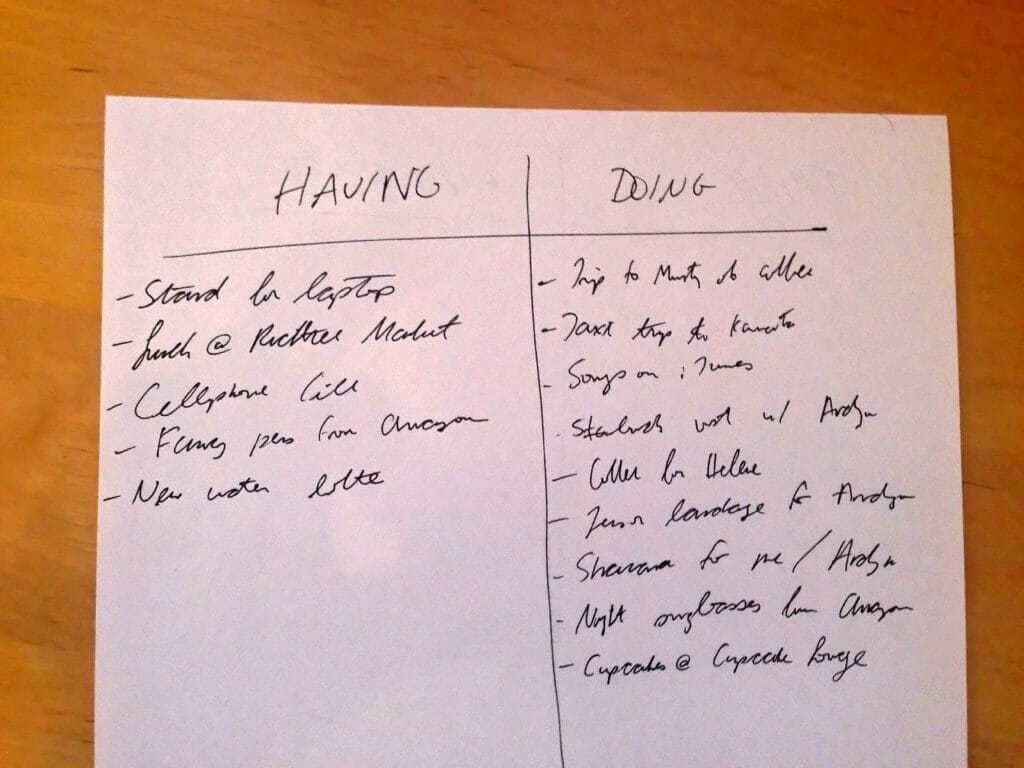 HAVING
- Stand for laptop
- Lunch @ Richtree Market
- Cellphone bill
- Fancy pens from Amazon
- New water bottle
DOING
- Trip to Ministry of coffee
- Taxi trip to Kanata
- Songs on iTunes
- Starbucks w/ Ardyn
- Coffee for Helene
- Tensor bandage for Ardyn
- Shawarma for me / Ardyn
- Night sunglasses from Amazon
- Cupcakes @ Cupcake Lounge